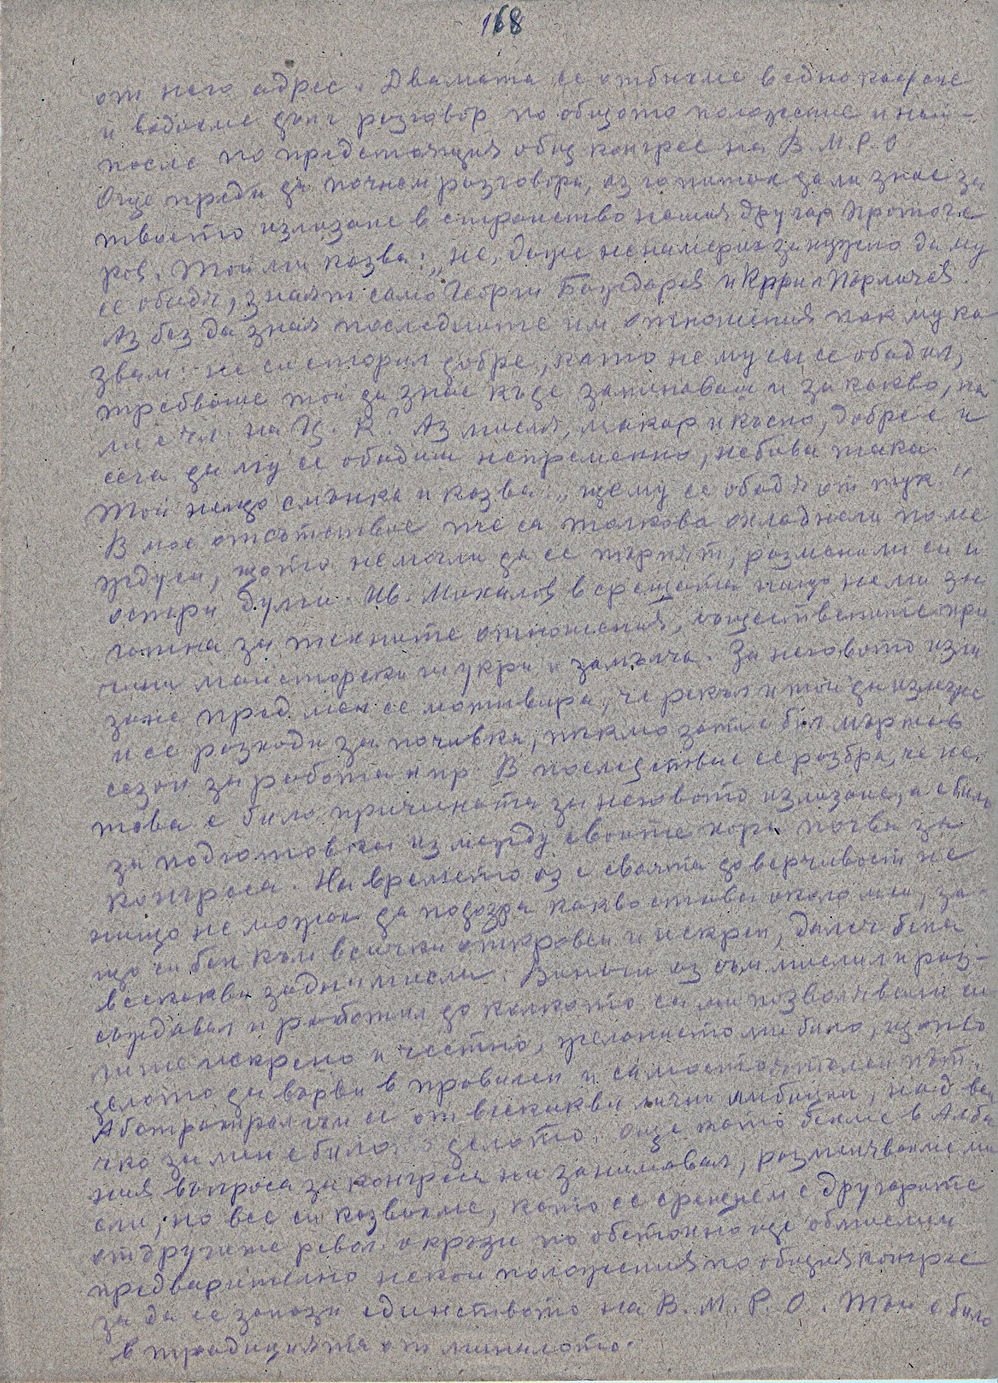 168
от него адрес. Двамата се отбихме в едно кафене
и водихме дълг разговор по общото положение и най-
после по предстоящия общ конгрес на В.М.Р.О.
Още преди да почнем разговора, аз го питах дали знае за
твоето излизане в странство нашия другар Протоге
ров. Той ми казва: "не, даже не намерих за нужно да му
се обадя, знаят само Георги Баждаров и Кирил Пърличев.
Аз без да зная последните им отношения пак му ка
звам: не си сторил добре, като не му си се обадил,
требваше той да знае къде заминаваш и за какво, на
ли е чл. на Ц. К.? Аз мисля, макар и късно, добре е и
сега да му се обадиш непременно, небива така.
Той нещо смънка и казва: "ще му се обадя от тук."
В мое отсътствие те са толкова охладнели по ме
жду си, щото немогли да се търпят, разменили си и
остри думи. Ив. Михайлов в срещата нищо не ми за
гатна за техните отношения, съществените при
чини майсторски ги укри и замълча. За неговото изли
зане пред мен се мотивира, че рекъл и той да излезне
и се разходи за почивка, тъкмо затова бил мъртав
сезон за работа и пр. В последствие се разбра, че не
това е било причината за неговото излизане, а е било
за подготовка из между своите хора почва за
конгреса. На времето аз с своята доверчивост не
нищо не можах да подозра какво става около ми, за-
що си бех към всички откровен и искрен, далеч бех
всекакви задни мисли. Винаги аз съм мислил и раз-
съждавал и работил до колкото са ми позволявали си
лите искрено и честно, желанието ми било, щото
делото да върви в правилен и самостоятелен път.
Абстрахирал съм се от всекакви лични амбиции, над вси
чко за мен е било делото. Още като бехме в Алба
ния въпроса за конгреса ни занимавал, разменвахме ми
сли, но все си казвахме, като се срещнем с другарите
от другите револ. окръзи по обстойно ще обмислим
предварително некои положения по общия конгрес
за да се запази единството на В.М.Р.О. Тъй е било
в традицията от миналото.